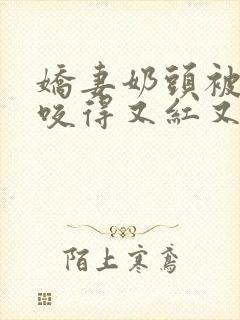 嬌妻奶頭被
咬得又紅又
陌上寒鳶